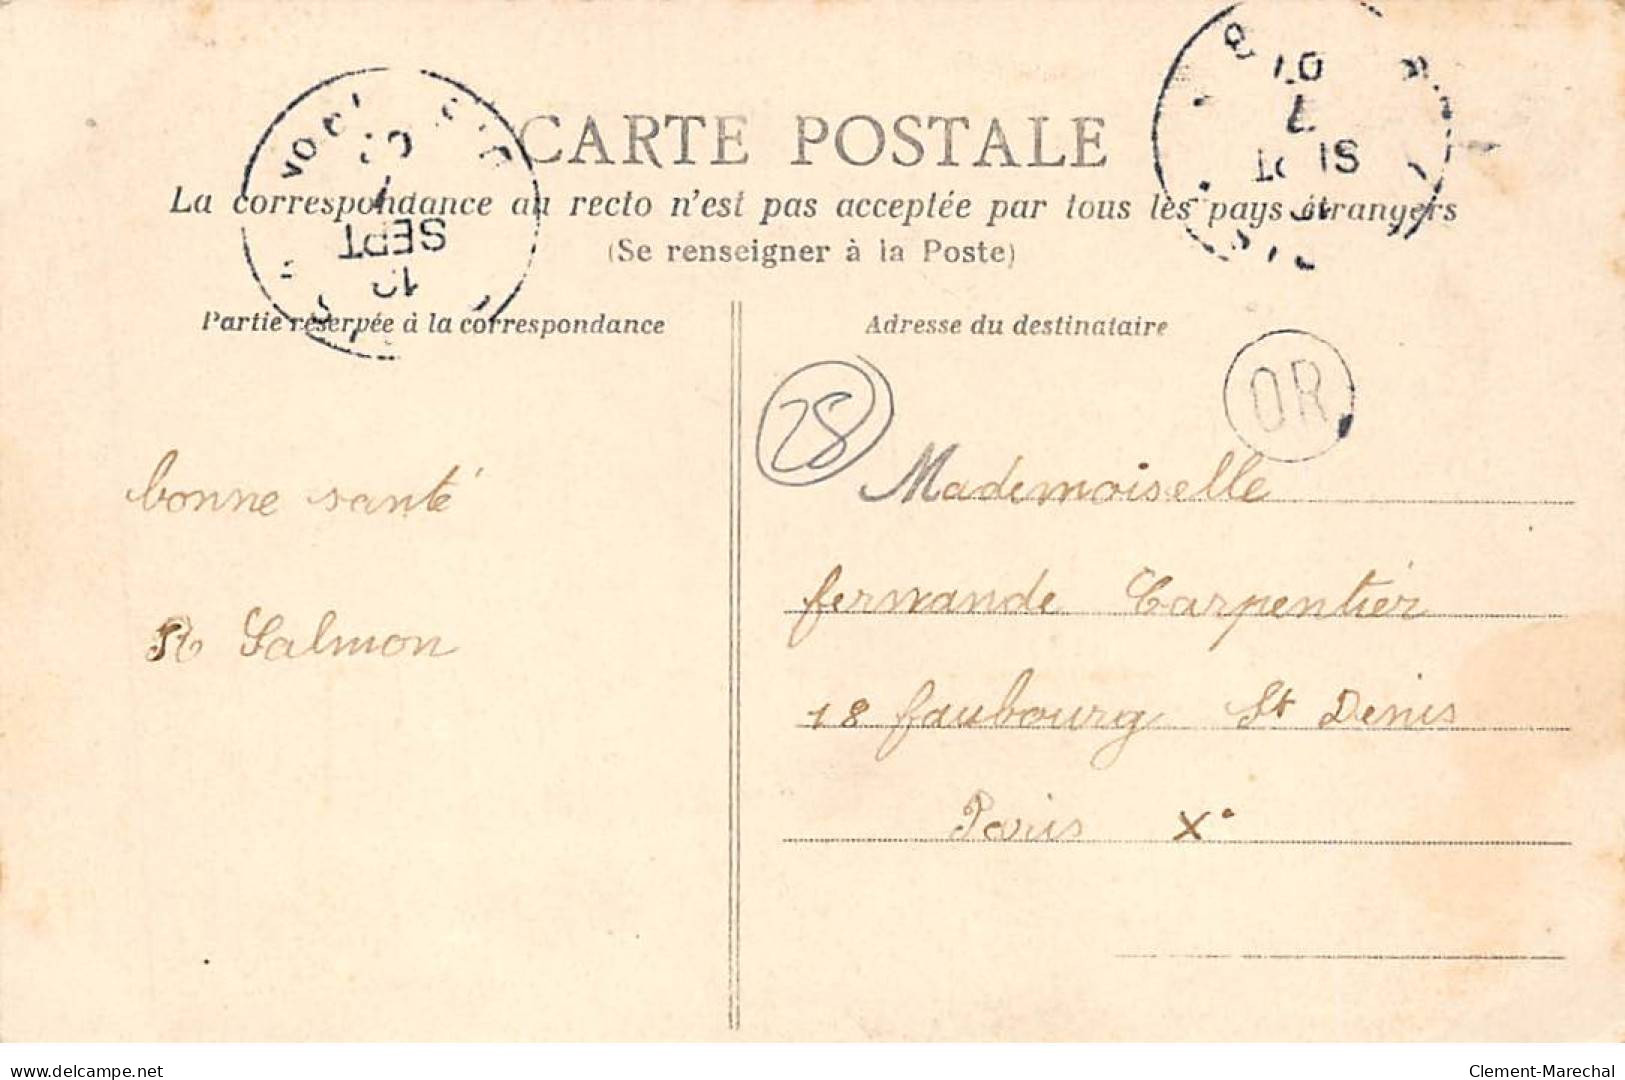 CARTE POSTALE
La correspondance au recto n'est pas acceptée par tous les pays étrangers
(Se renseigner à la Poste)
Partie réservée à la correspondance
Adresse du destinataire
SEPT
OR
28
bonne santé
R Salmon
Mademoiselle
fernande Carpentier
18 faubourg St Denis
Paris X°
delcampe.net
Clement-Marechal